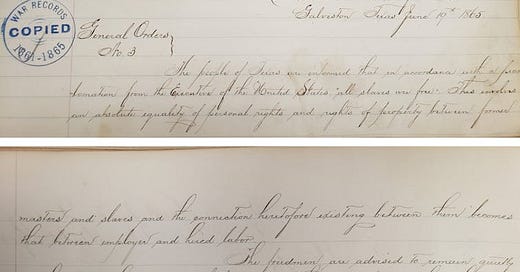 WAR RECORDS
COPIED
1861-1865
Galveston Texas June 19th 1865.
General Orders
No. 3
The people of Texas are informed that in accordance with a proc
lamation from the Executive of the United States, "all slaves are free." This involves
an absolute equality of personal rights and rights of property between former
masters and slaves and the connection heretofore existing between them becomes
that between employer and hired labor.
The freedmen are advised to remain quietly